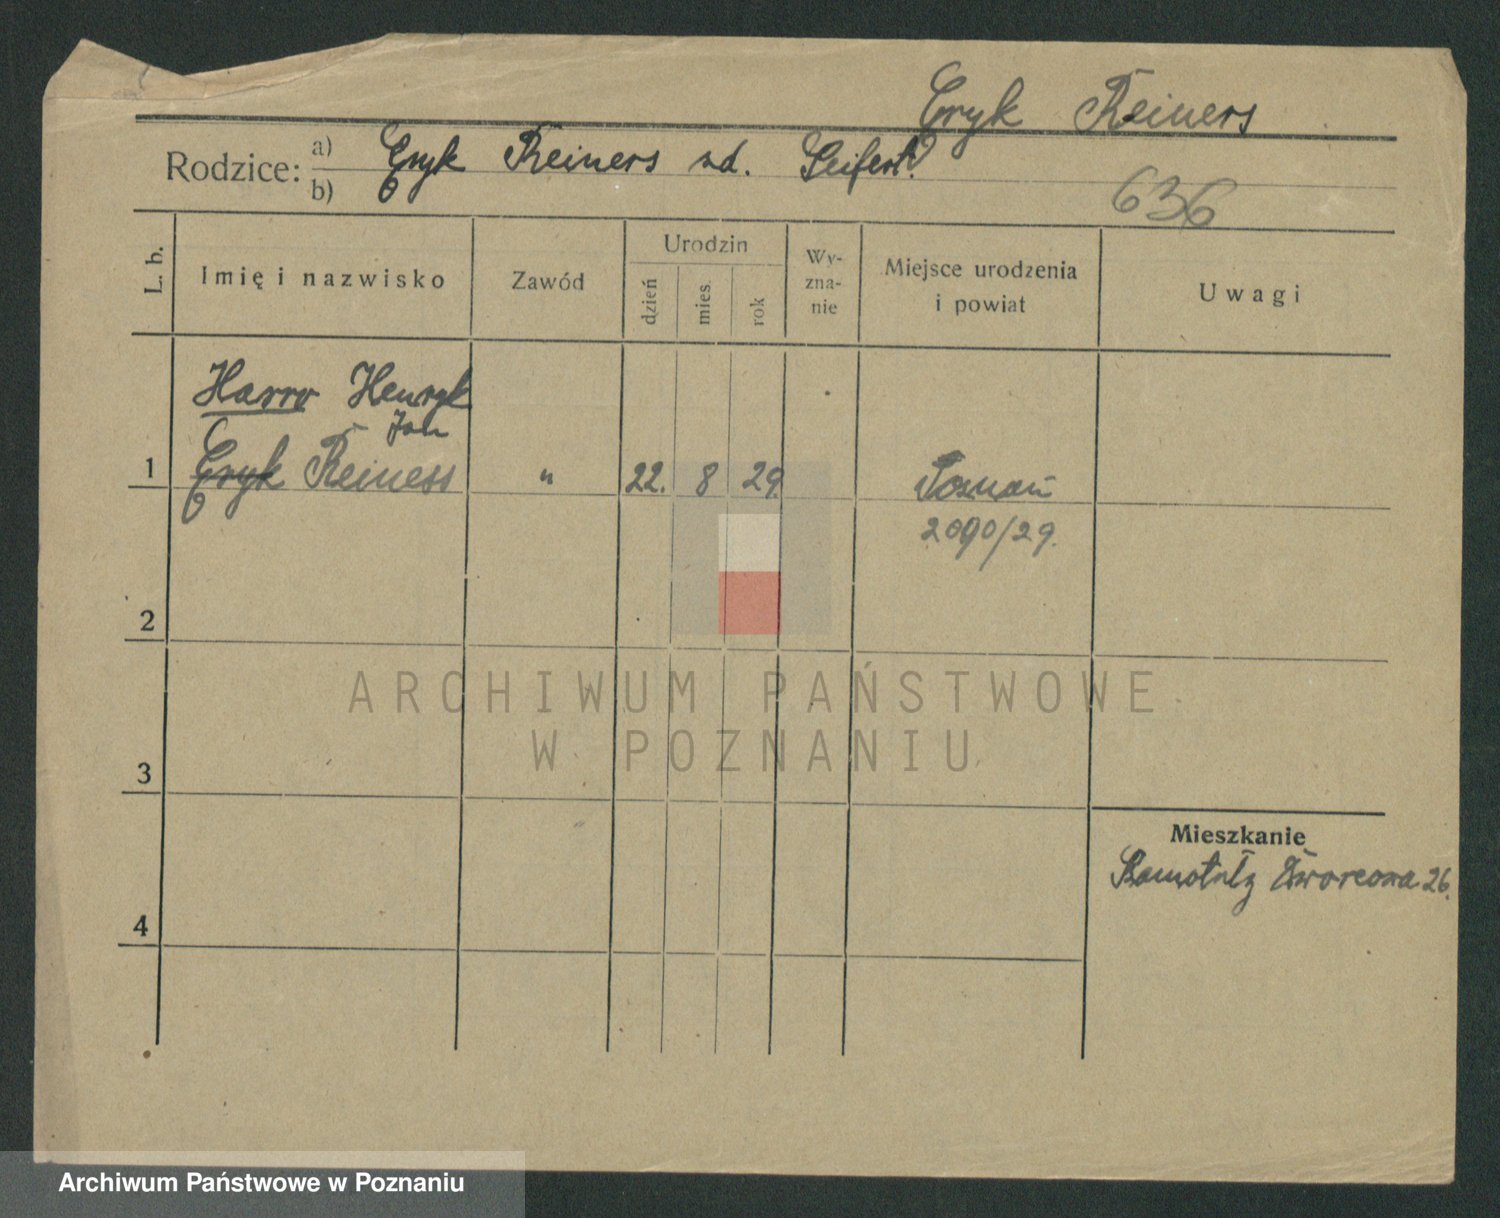 Eryk Reiners
Rodzice: a) Eryk Reiners zd. Seifert
b)
636
L. b.
Imię i nazwisko
Zawód
Urodzin
dzień
mies.
rok
Wy-
zna-
nie
Miejsce urodzenia
i powiat
Uwagi
Harro Henryk
Jan
1 Eryk Reiners " 22. 8 29. Poznań
2090/29.
2
ARCHIWUM PAŃSTWOWE
W POZNANIU
3
Mieszkanie
Dworcowa 26.
4
Archiwum Państwowe w Poznaniu